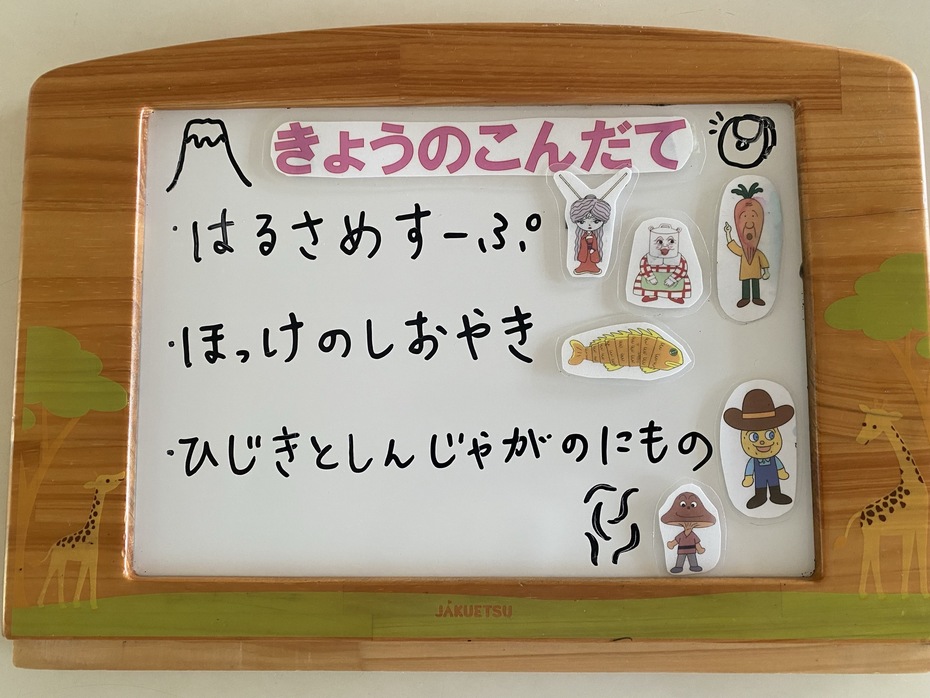 きょうのこんだて
・はるさめすーぷ
・ほっけのしおやき
・ひじきとしんじゃがのにもの
JAKUETSU